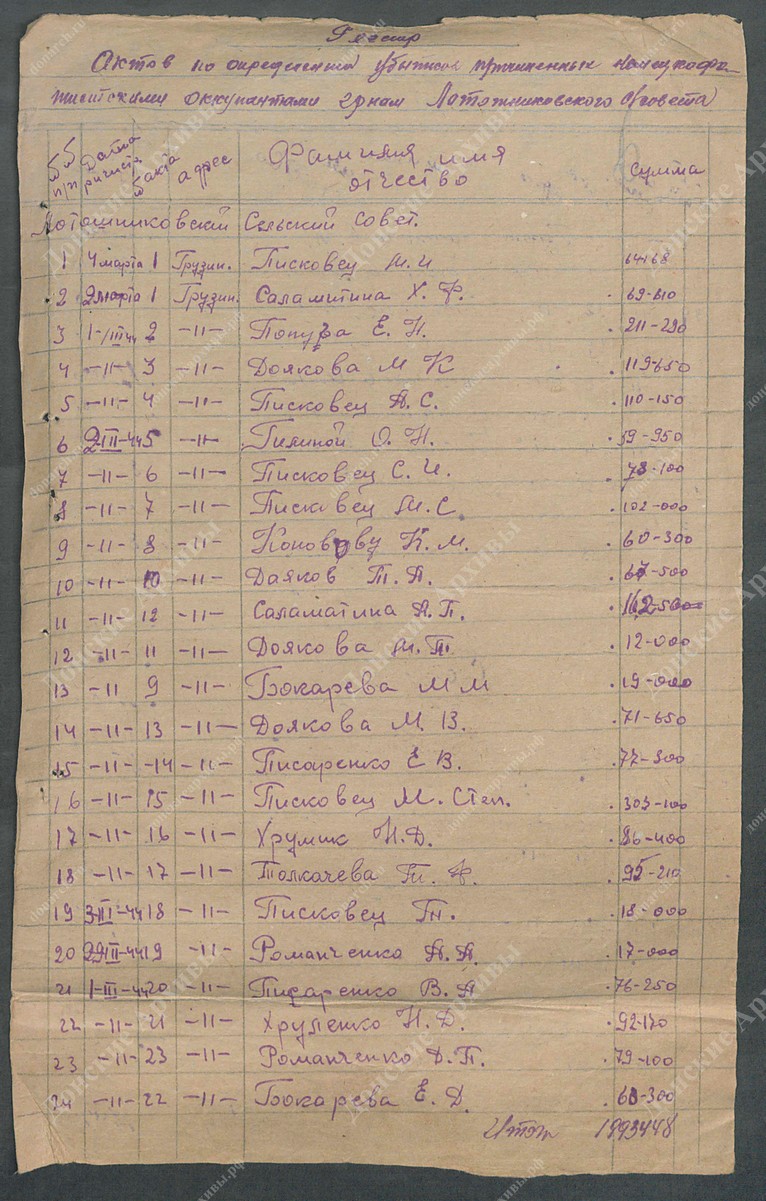 Реестр
Актов по определению убытков причиненных немецкофа-
шистскими оккупантами гр-нам Лотошниковского с/совета
№№ п/п Датта акта адрес Фамилия имя отчество сумма
Лотошниковский Сельский Совет.
1 4 марта 1 Грузин. Писковец М. И 64168
2 2 марта 1 Грузин. Саламитина Х. Ф. 69-610
3 1-/III 44 2 -11- Е. Н. 211-290
4 -11- 3 -11- Доякова М К 119-650
5 -11- 4 -11- Писковец А. С. 110-150
6 2 III-44 5 -11- О. Н. 59-950
7 -11- 6 -11- Писковец С. И. 73-100
8 -11- 7 -11- Писковец М. С. 102-000
9 -11- 8 -11- К. М. 60-300
10 -11- 10 -11- Даяков Т. А. 67-500
11 -11- 12 -11- Саламатина А. П. 162-500
12 -11- 11 -11- Доякова 12-000
13 -11 9 -11- Бокарева М М 19-000
14 -11- 13 -11- Доякова М. В. 71-650
15 -11- -14 -11- Писаренко Е В. 77-300
16 -11- 15 -11- Писковец М. Степ. 303-100
17 -11- 16 -11- Н. Д. 86-400
18 -11- 17 -11- Толкачева 95-210
19 3-III-44 18 -11- Писковец 18-000
20 29 II-44 19 -11- Романченко А. А. 17-000
21 1-III-44 20 -11- Писаренко В. А 76-250
22 -11- 21 -11- Хруленко Н. Д. 92-120
23 -11- 23 -11- Романченко Д. П. 79-100
24 -11- 22 -11- Бокарева Е. Д. 60-300
Итог 1993448
Донские Архивы
donarch.ru
донские-архивы.рф